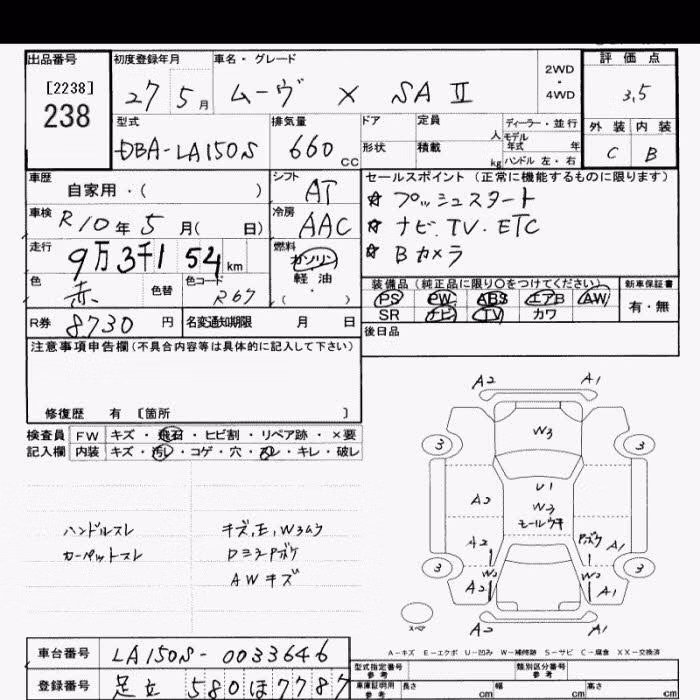 出品番号
[2238]
238
初度登録年月
27 5月
車名・グレード
ムーヴ X SA Ⅱ
2WD
・
4WD
評価点
3.5
外装 内装
C B
型式
DBA-LA150S
排気量
660 CC
ドア
形状
定員 人
積載 kg
ディーラー・並行
モデル
年式 年
ハンドル 左・右
車歴
自家用・( )
シフト
AT
車検 R10年5月( 日)
冷房
AAC
走行
9万3千154km
燃料
ガソリン
軽油
( ・ )
色
赤
色替
色コード
R67
R券 8730円
名変通知期限 月 日
セールスポイント(正常に機能するものに限ります)
☆ プッシュスタート
☆ ナビ、TV、ETC
☆ Bカメラ
装備品(純正品に限り○をつけてください)
PS PW ABS エアB AW
SR ナビ TV カワ
新車保証書
有・無
後日品
注意事項申告欄(不具合内容等は具体的に記入して下さい)
修復歴 有 〔箇所 〕
検査員 FW キズ・飛石・ヒビ割・リペア跡・×要
記入欄 内装 キズ・汚レ・コゲ・穴・スレ・キレ・破レ
ハンドルスレ
カーペットスレ
キズ、E、W3ムラ
AWキズ
A2 A1
W3
3 3
U1
A2 W3
モールウキ
A2 A1
3 3
W2 W2
A2 A1
スペア
A2 A1
A-キズ E-エクボ U-凹み W-補修跡 S-サビ C-腐食 XX-交換済
車台番号 LA150S-0033646
登録番号 足立 580ほ7787
型式指定番号
参考
類別区分番号
参考
車庫証明用
参考
長さ cm 幅 cm 高さ cm